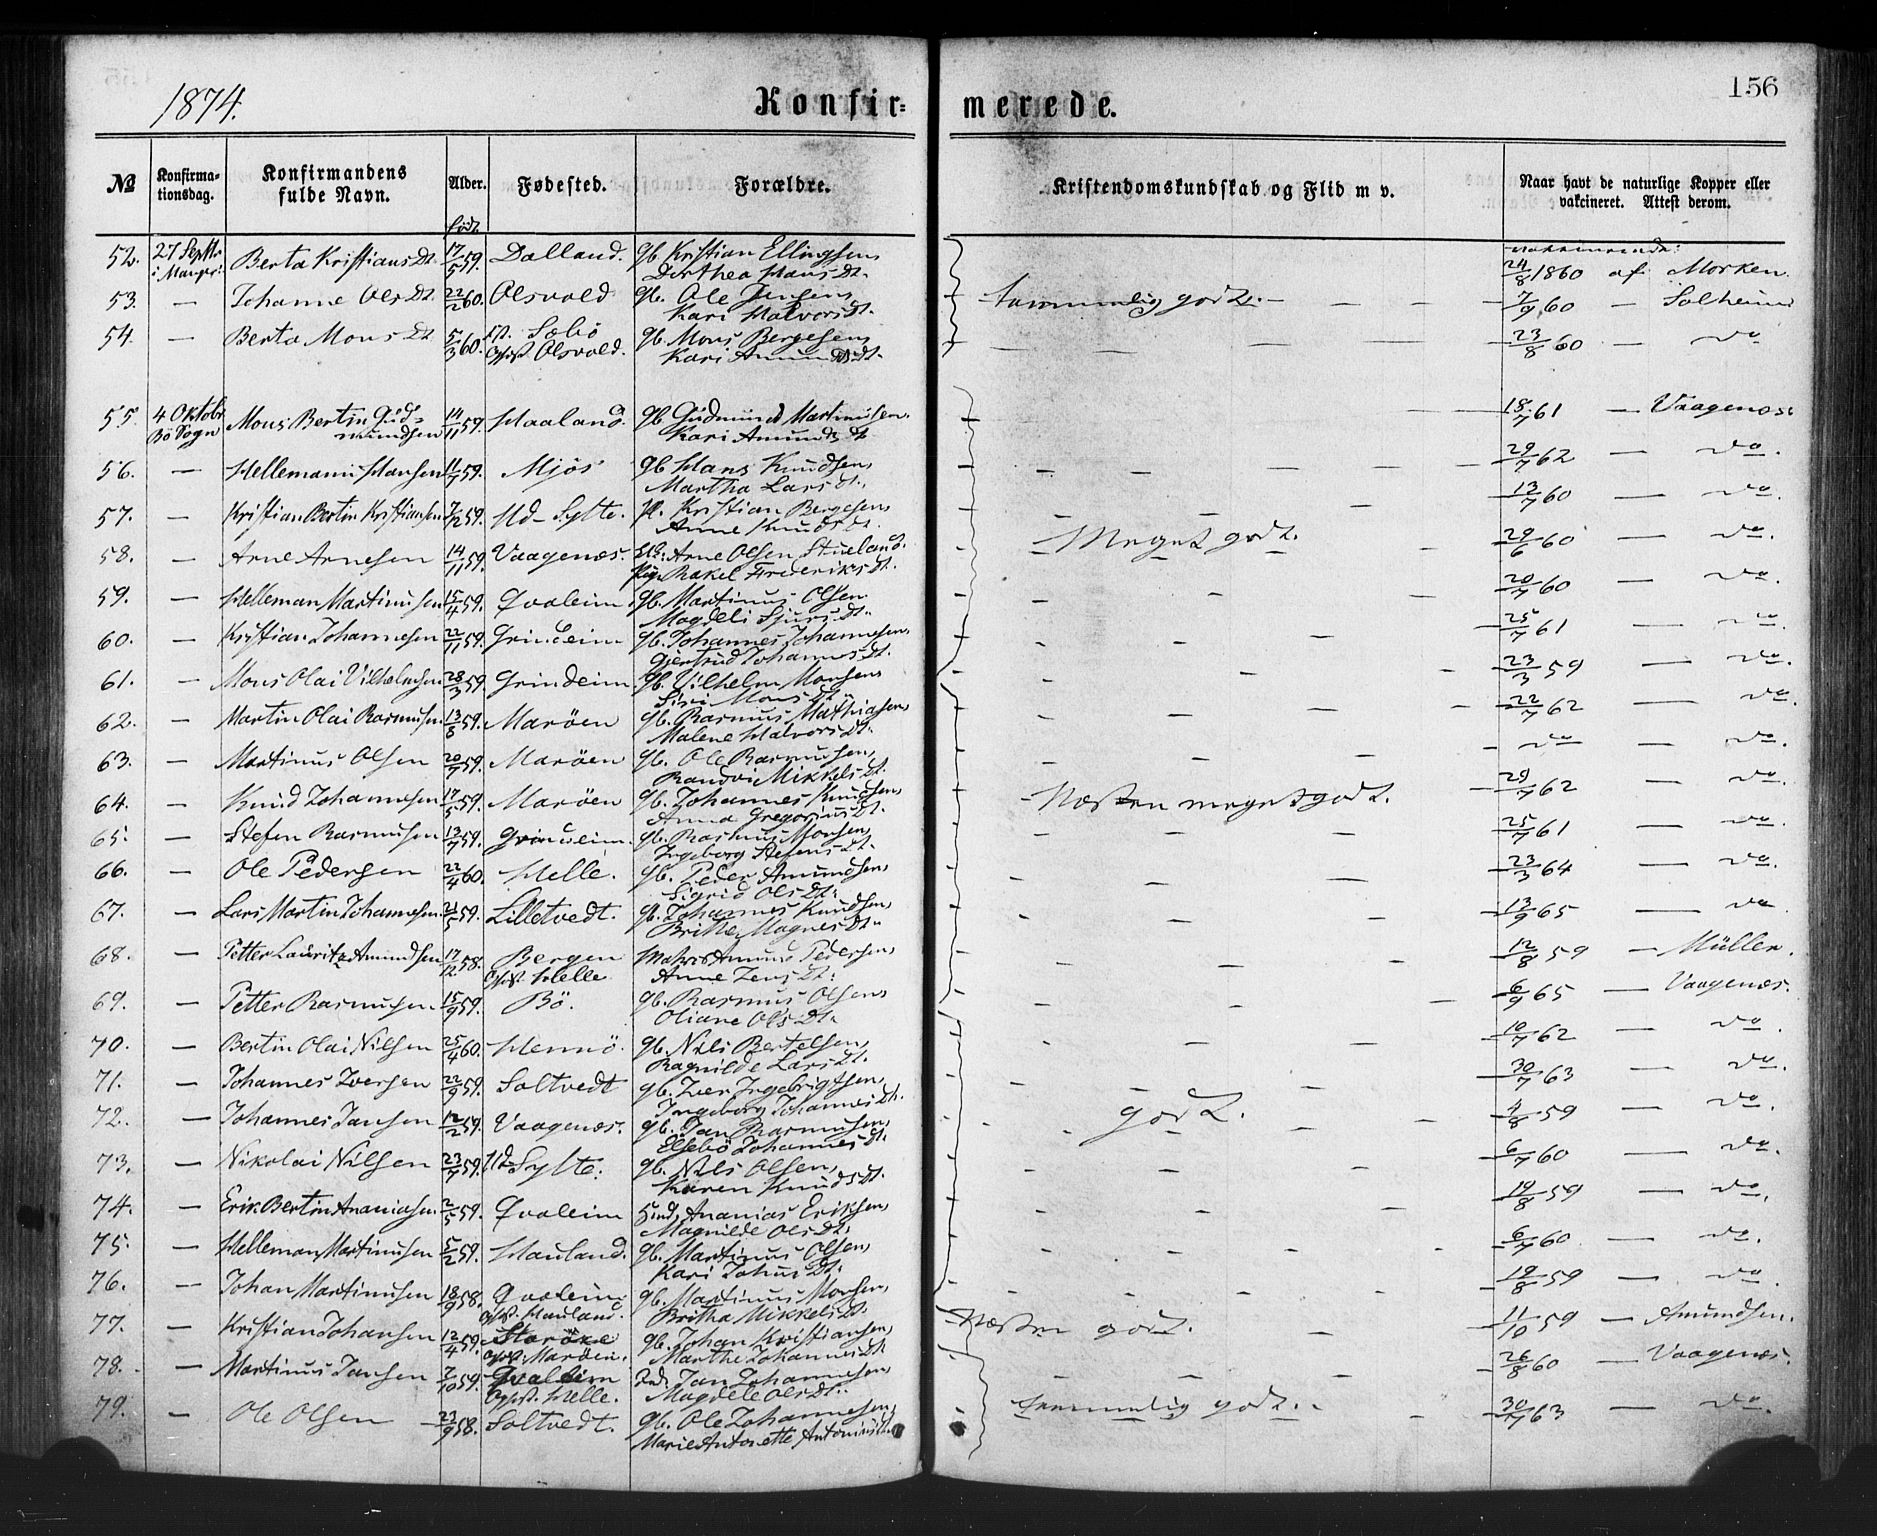 156
1874.
Konfir= merede.
No Konfirma-tionsdag. Konfirmandens fulde Navn. Alder. Fødested. Forældre. Kristendomskundskab og Flid m v. Naar havt de naturlige Kopper eller vakcineret. Attest derom.
født
52. 27 Septbr. Berta Kristians Dt. 17/5 59. Dalland. gb. Kristian Ellingsen, Dorthea Hans Dt. 24/8 1860 af Morken
53. — Johanne Ols Dt. 22/2 60. Olsvold gb. Ole Jensen, Kari Halvors Dt. temmelig godt. 7/9 60 — Solheim
54. — Berta Mons Dt. 5/3 60. Sæbö Opf. Olsvold. gb. Mons Bergesen, Kari Amunds Dt. — 23/8 60 — do
55. 4 Oktobr Bö Sogn Mons Bertin Gudmundsen 14/11 59. Haaland. gb. Gudmund Martinusen. Kari Amunds dt. — 18/7 61 — Vaagenæs
56. — Hellemann Hansen 11/7 59. Mjös gb Hans Knudsen, Martha Lars dt. — 29/7 62 — do.
57. — Kristian Bertin Kristiansen 7/12 59. Ud-Sylte. pl. Kristian Bergesen, Anne Knuds dt. — 13/7 60 — do.
58. — Arne Arnesen 14/11 59. Vaagenæs. Arne Olsen Stueland. Pige Rakel Frederiks Dt. Meget godt. 29/6 60 — do.
59. — Helleman Martinusen 15/4 59. Qvaleim gb. Martinus Olsen Magdeli Sjurs Dt. — 20/7 60 — do.
60. — Kristian Johannesen 22/11 59. Grindeim gb. Johannes Johannesen, Gjertrud Johannes Dt. — 25/7 61 — do.
61. — Mons Olai Vilhelmsen 28/3 59. Grindeim gb. Vilhelm Monsen, Siri Mons dt. — 23/3 59 — do.
62. — Martin Olai Rasmusen 13/8 59. Maröen gb. Rasmus Mathiasen, Malene Halvors Dt. — 22/7 62 — do.
63. — Martinus Olsen 20/7 59. Maröen gb. Ole Rasmusen, Randvi Mikkels Dt. — do — do.
64. — Knud Johannesen 17/5 59. Maröen gb. Johannes Knudsen, Anna Gregorius Dt. Næsten meget godt. 29/7 62 — do.
65. — Stefen Rasmusen 13/7 59. Grindeim. gb. Rasmus Monsen, Ingeborg Stefens Dt. — 25/7 61 — do.
66. — Ole Pedersen 22/4 60. Helle. gb. Peder Amundsen, Sigrid Ols Dt. — 23/3 64 — do.
67. — Lars Martin Johannesen 21/5 59. Lilletvedt. gb. Johannes Knudsen, Britha Magnes Dt. — 13/9 65 — do.
68. — Petter Lauritz Amundsen 17/12 58. Bergen Opf. Helle Matros Amund Pedersen, Anne Jens Dt. — 12/8 59 — Müller.
69. — Petter Rasmusen 15/9 59. Bö. gb. Rasmus Olsen, Oliane Ols Dt. — 6/9 65 — Vaagenæs.
70. — Bertin Olai Nilsen 25/4 60. Hennö. gb. Nils Bertelsen, Ragnilde Lars Dt. — 10/7 62 — do.
71. — Johannes Iversen 22/9 59. Soltvedt gb. Iver Ingebrigtsen, Ingeborg Johannes Dt. — 30/7 63 — do.
72. — Johannes Jansen 12/2 59. Vaagenæs. gb. Jan Rasmusen, Elsebö Johannes Dt. godt. 4/8 59 — do.
73. — Nikolai Nilsen 23/7 59. Ud Sylte. gb. Nils Olsen, Karen Knuds Dt. — 6/7 60 — do.
74. — Erik Bertin Ananiasen. 2/5 59. Qvaleim Ananias Eriksen, Magnilde Ols Dt. — 19/8 59 — do.
75. — Helleman Martinusen 5/2 59. Hauland. gb. Martinus Olsen, Kari Johns Dt. — 6/7 60 — do.
76. — Johan Martinusen 18/9 58. Qvaleim Opf. Hauland. gb. Martinus Monsen, Britha Mikkels Dt. — 19/8 59 — do.
77. — Kristian Johansen 12/4 59. Opf. Maröen. gb. Johan Kristiansen, Marthe Johannes Dt. Næsten godt. 11/10 59 — Amundsen.
78. — Martinus Jansen 7/10 59. Qvaleim Opf. Helle. Jan Johannesen, Magdele Ols dt. — 26/8 60 — Vaagenæs.
79. — Ole Olsen 23/9 58. Soltvedt. gb. Ole Johannesen, Marie Antonette Antonius Dt. temmelig godt. 30/7 63 — do.